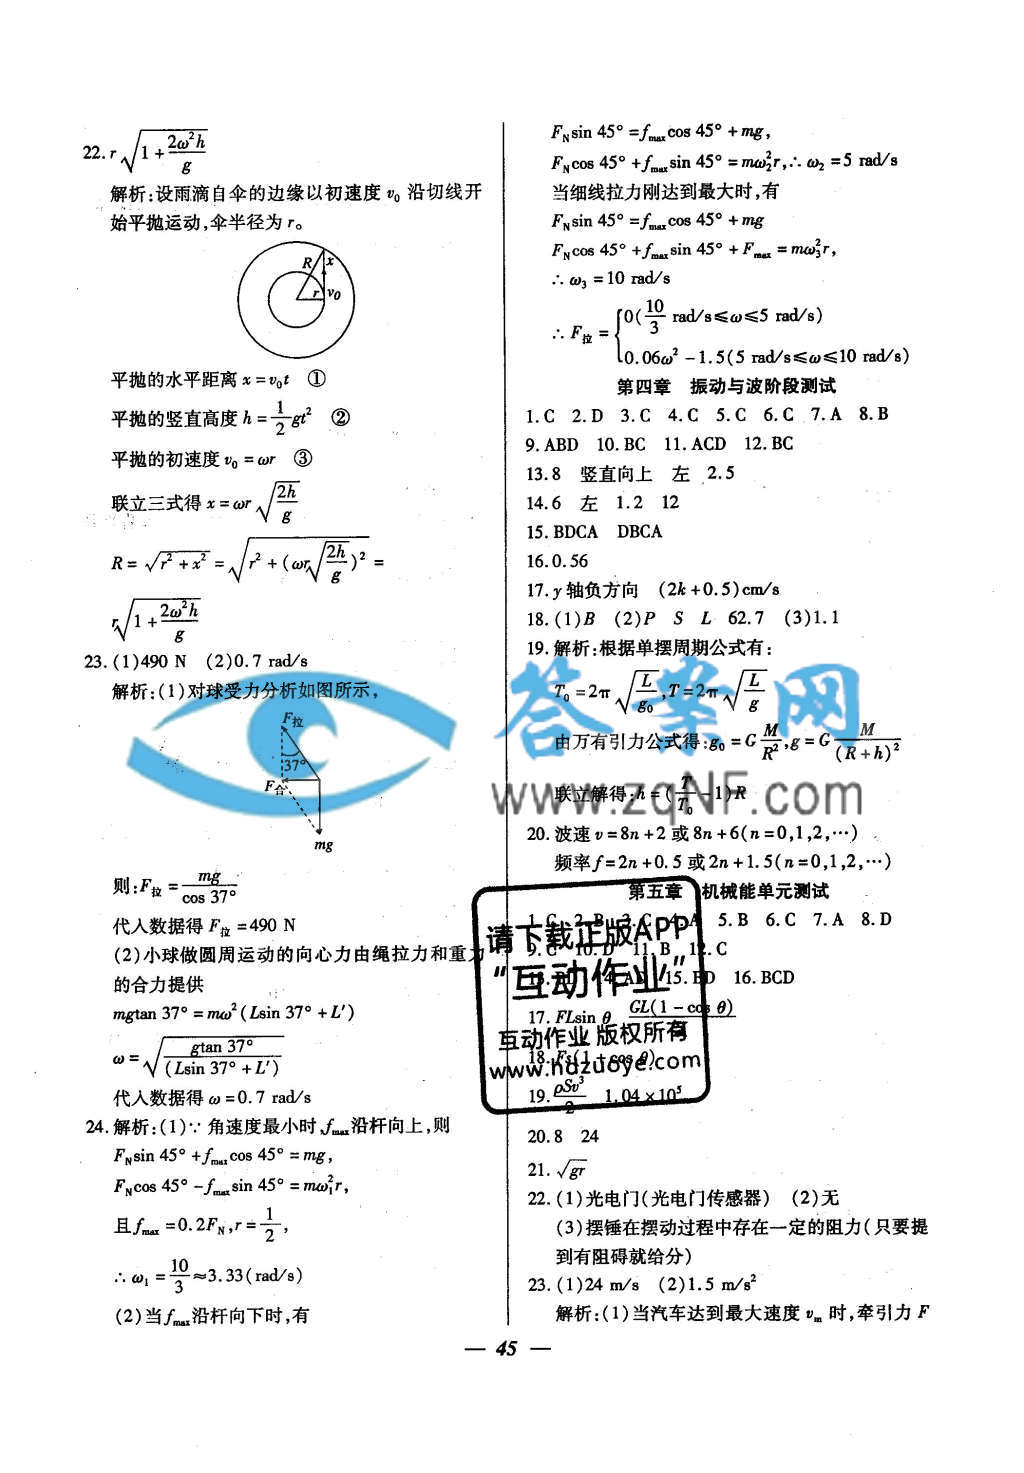 22. r√(1+2ω²h/g)
解析:设雨滴自伞的边缘以初速度 v₀ 沿切线开
始平抛运动,伞半径为 r。
R x
r v₀
平抛的水平距离 x=v₀t ①
平抛的竖直高度 h=1/2 gt² ②
平抛的初速度 v₀=ωr ③
联立三式得 x=ωr√(2h/g)
R=√(r²+x²)=√(r²+(ωr√(2h/g))²)=
r√(1+2ω²h/g)
23. (1)490 N (2)0.7 rad/s
解析:(1)对球受力分析如图所示,
F拉
37°
F合
mg
则:F拉=mg/cos 37°
代入数据得 F拉=490 N
(2)小球做圆周运动的向心力由绳拉力和重力
的合力提供
mgtan 37°=mω²(Lsin 37°+L′)
ω=√(gtan 37°/(Lsin 37°+L′))
代入数据得 ω=0.7 rad/s
24. 解析:(1)∵角速度最小时,fmax沿杆向上,则
FNsin 45°+fmaxcos 45°=mg,
FNcos 45°-fmaxsin 45°=mω₁²r,
且 fmax=0.2FN,r=1/2,
∴ω₁=10/3≈3.33(rad/s)
(2)当fmax沿杆向下时,有
FNsin 45°=fmaxcos 45°+mg,
FNcos 45°+fmaxsin 45°=mω₂²r,∴ω₂=5 rad/s
当细线拉力刚达到最大时,有
FNsin 45°=fmaxcos 45°+mg
FNcos 45°+fmaxsin 45°+Fmax=mω₃²r,
∴ω₃=10 rad/s
∴F拉={0(10/3 rad/s≤ω≤5 rad/s)
0.06ω²-1.5(5 rad/s≤ω≤10 rad/s)
第四章 振动与波阶段测试
1. C 2. D 3. C 4. C 5. C 6. C 7. A 8. B
9. ABD 10. BC 11. ACD 12. BC
13. 8 竖直向上 左 2.5
14. 6 左 1.2 12
15. BDCA DBCA
16. 0.56
17. y轴负方向 (2k+0.5)cm/s
18. (1)B (2)P S L 62.7 (3)1.1
19. 解析:根据单摆周期公式有:
T₀=2π√(L/g₀),T=2π√(L/g)
由万有引力公式得:g₀=G M/R²,g=G M/(R+h)²
联立解得:h=(T/T₀-1)R
20. 波速 v=8n+2 或 8n+6(n=0,1,2,…)
频率f=2n+0.5 或 2n+1.5(n=0,1,2,…)
第五章 机械能单元测试
1. C 2. B 3. C 4. A 5. B 6. C 7. A 8. D
9. C 10. D 11. B 12. C
15. BD 16. BCD
17. FLsin θ GL(1-cos θ)
19. ρSv³/2 1.04×10⁵
20. 8 24
21. √gr
22. (1)光电门(光电门传感器) (2)无
(3)摆锤在摆动过程中存在一定的阻力(只要提
到有阻碍就给分)
23. (1)24 m/s (2)1.5 m/s²
解析:(1)当汽车达到最大速度 vm 时,牵引力 F
— 45 —
答案网
www.zqNF.com
请下载正版APP
“互动作业”
互动作业 版权所有
www.hdzuoye.com